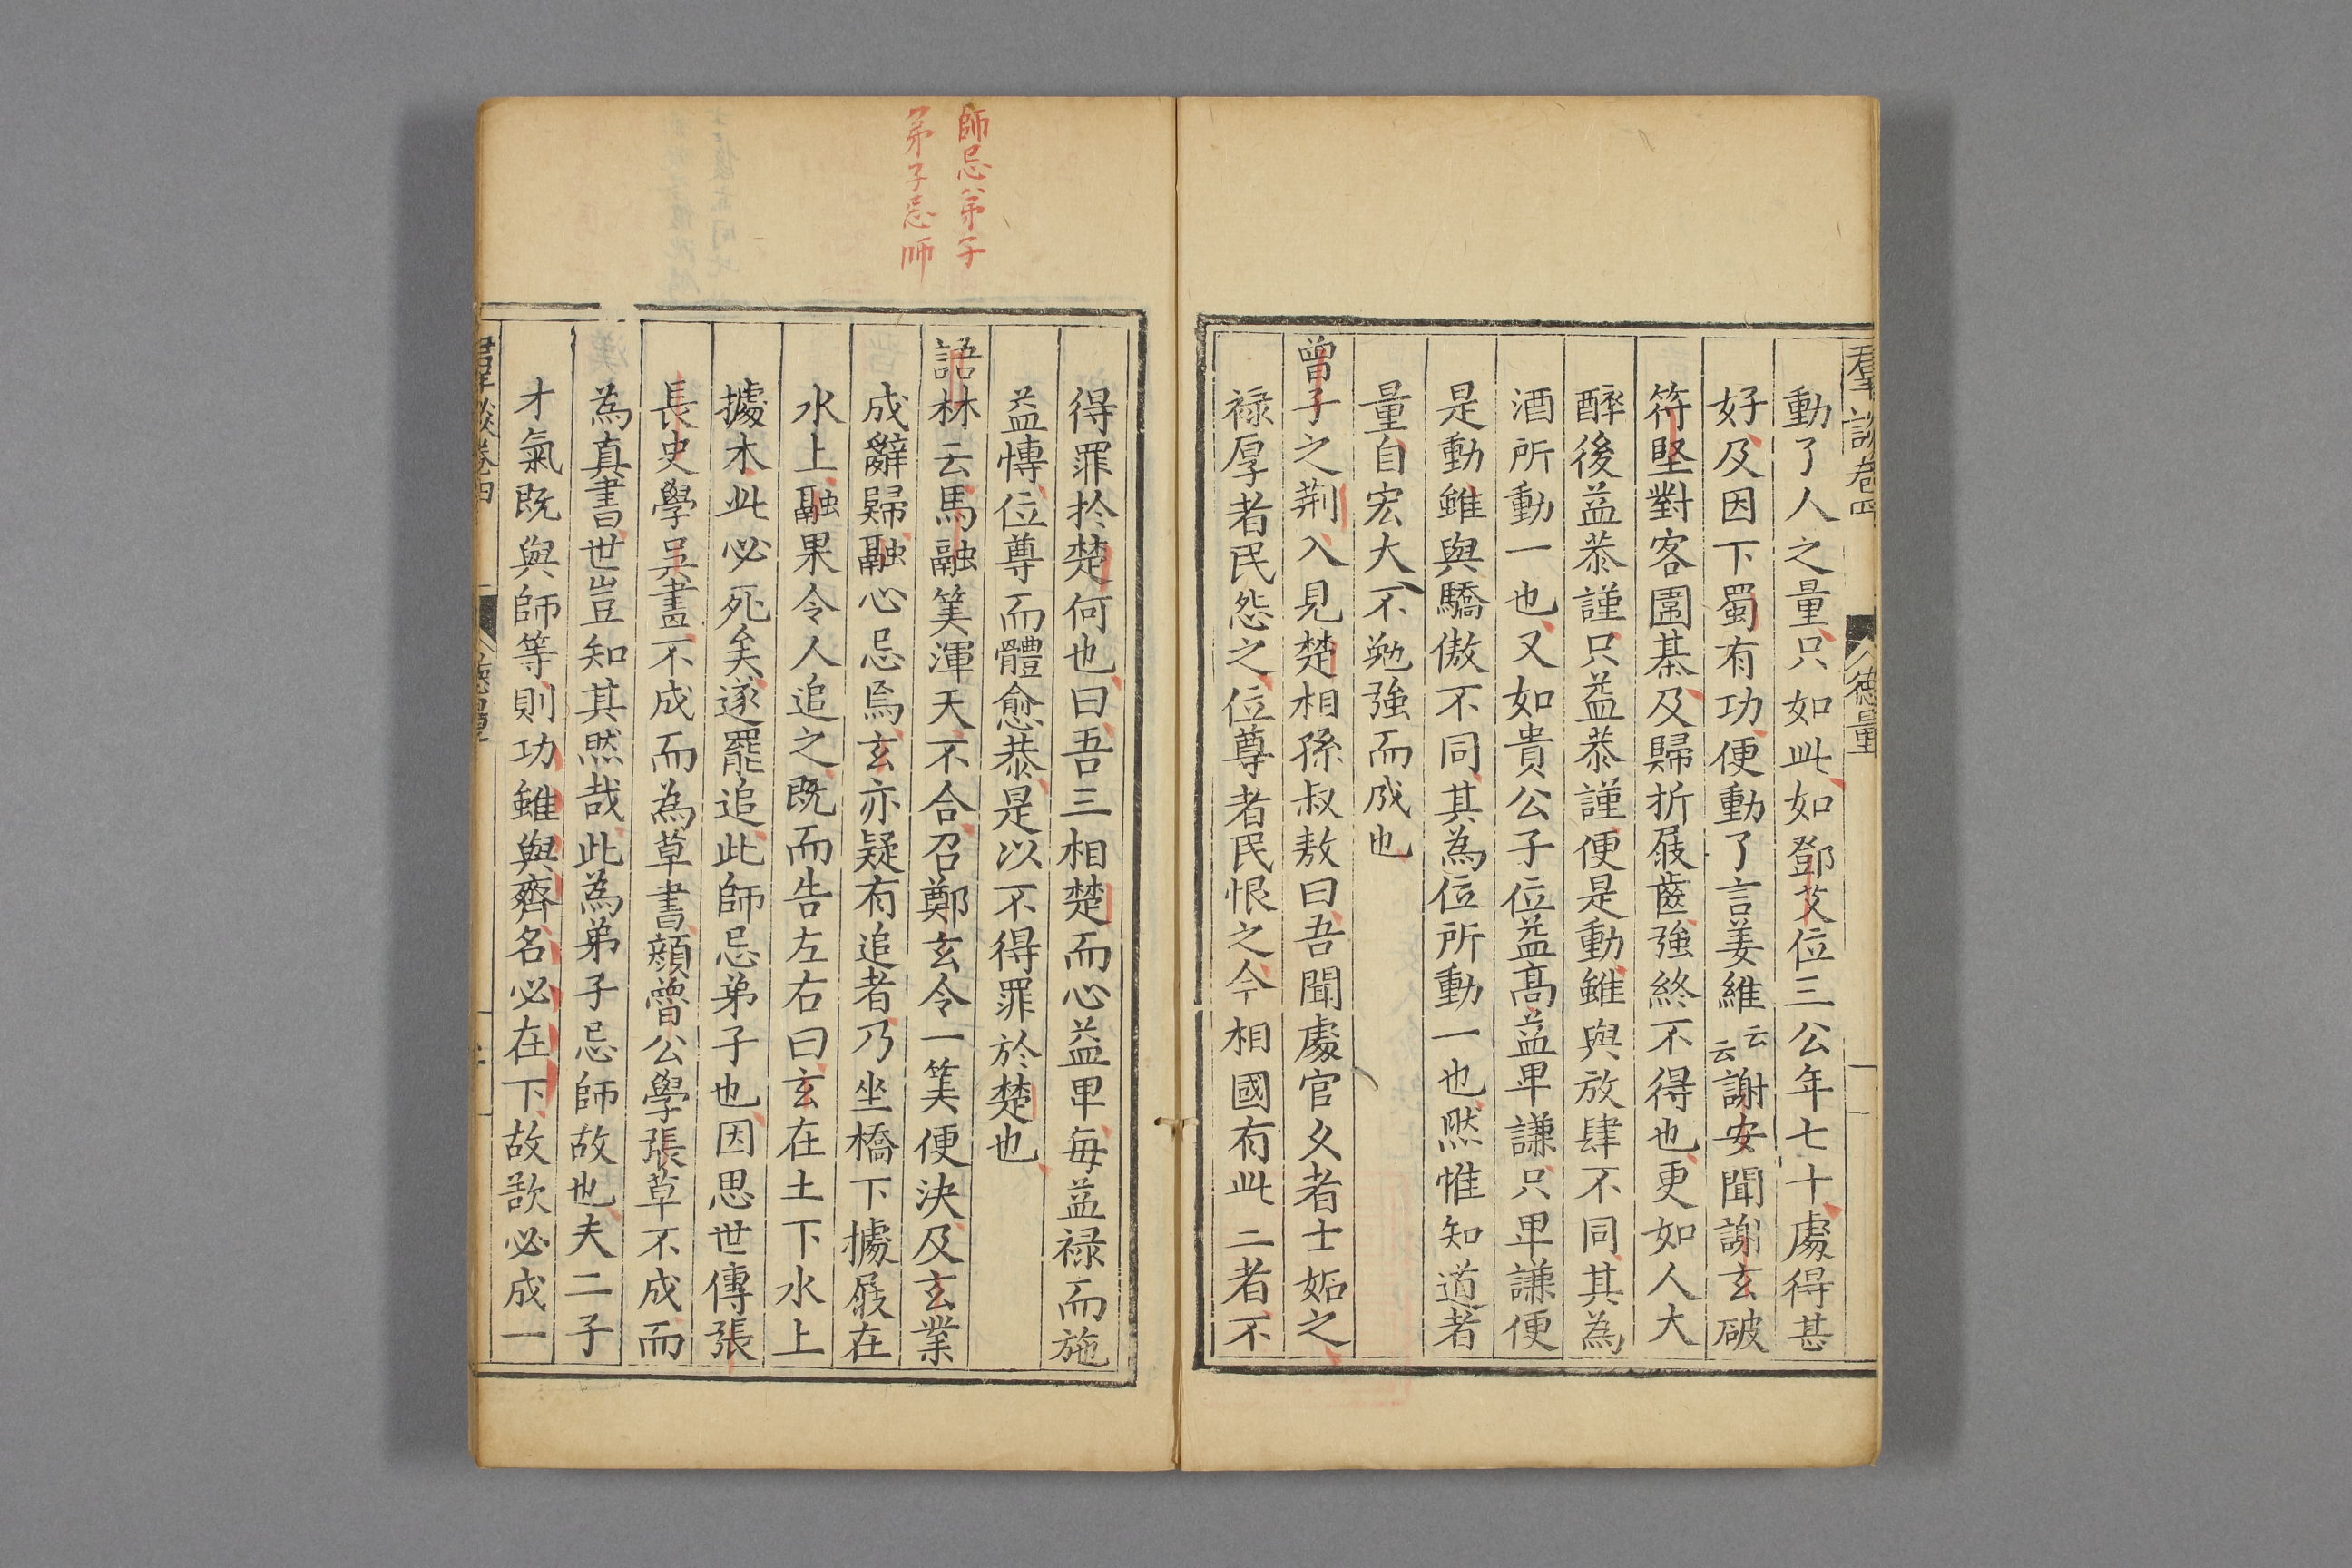 羣談卷四
德量
動了人之量只如此如鄧艾位三公年七十處得甚
好及因下蜀有功便動了言姜維云云謝安聞謝玄破
符堅對客圍棊及歸折屐齒強終不得也更如人大
醉後益恭謹只益恭謹便是動雖與放肆不同其為
酒所動一也又如貴公子位益高益卑謙只卑謙便
是動雖與驕傲不同其為位所動一也然惟知道者
量自宏大不勉強而成也
曾子之荆入見楚相孫叔敖曰吾聞處官久者士妬之
禄厚者民怨之位尊者民恨之今相國有此二者不
師忌弟子
弟子忌師
得罪扵楚何也曰吾三相楚而心益卑每益禄而施
益慱位尊而體愈恭是以不得罪於楚也
語林云馬融筭渾天不合召鄭玄令一筭便決及玄業
成辭歸融心忌焉玄亦疑有追者乃坐橋下據屐在
水上融果令人追之既而告左右曰玄在土下水上
據木此必死矣遂罷追此師忌弟子也因思世傳張
長史學吳畫不成而為草書顏魯公學張草不成而
為真書世豈知其然哉此為弟子忌師故也夫二子
才氣既與師等則功雖與齊名必在下故歆必成一
羣談卷四
德量